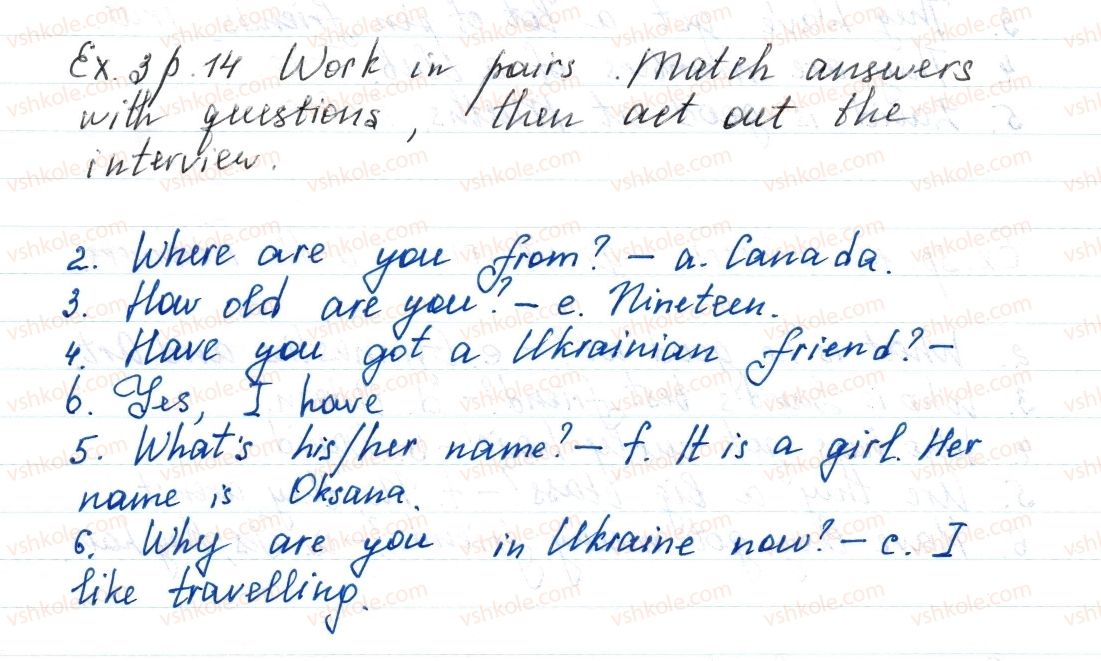 Ex. 3 p. 14 Work in pairs. Match answers
with questions, then act out the
interview.
2. Where are you from? – a. Canada.
3. How old are you? – e. Nineteen.
4. Have you got a Ukrainian friend? –
b. Yes, I have
5. What's his/her name? – f. It is a girl. Her
name is Oksana.
6. Why are you in Ukraine now? – c. I
like travelling.
vshkole.com